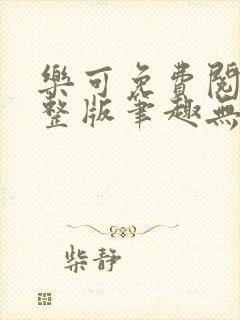 樂可免費閱
整版筆趣無
柴靜